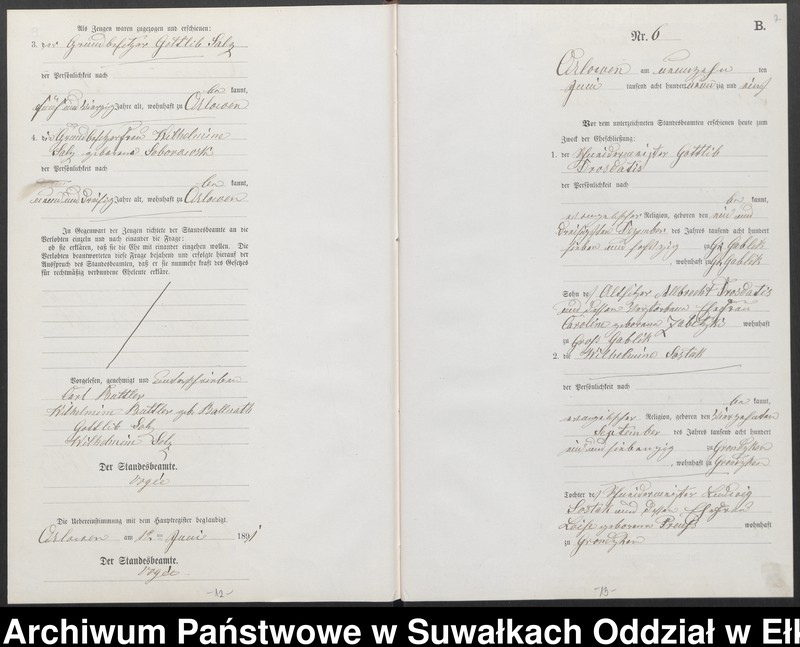 Als Zeugen waren zugezogen und erschienen:
3. der Grundbesitzer Gottlib Salz
der Persönlichkeit nach
kannt,
fünf und vierzig Jahre alt, wohnhaft zu Orlowen
4. die Grundbesitzerfrau Wilhelmine
Salz geborene
der Persönlichkeit nach
kannt,
neun und dreißig Jahre alt, wohnhaft zu Orlowen
In Gegenwart der Zeugen richtete der Standesbeamte an die
Verlobten einzeln und nach einander die Frage:
ob sie erklären, daß sie die Ehe mit einander eingehen wollen. Die
Verlobten beantworteten diese Frage bejahend und erfolgte hierauf der
Ausspruch des Standesbeamten, daß er sie nunmehr kraft des Gesetzes
für rechtmäßig verbundene Eheleute erkläre.
Vorgelesen, genehmigt und unterschrieben
Carl Buttler
Wilhelmine Buttler geb.
Gottlib Salz
Wilhelmine Salz
Der Standesbeamte.
Die Uebereinstimmung mit dem Hauptregister beglaubigt.
Orlowen am Juni 1891
Der Standesbeamte.
-12-
2
B.
Nr. 6
Orlowen am neunzehn ten
Juni tausend acht hundert neun zig und eins
Vor dem unterzeichneten Standesbeamten erschienen heute zum
Zweck der Eheschließung:
1. der Schneidermeister Gottlib
Prosdatis
der Persönlichkeit nach
kannt,
evangelischer Religion, geboren den ein und
dreißigsten Dezember des Jahres tausend acht hundert
sieben und sechzig zu Gr. Gablik
, wohnhaft zu Gr. Gablik
Sohn des Altsitzer Albrecht Prosdatis
und dessen verstorbene Ehefrau
Caroline geborene wohnhaft
zu Groß Gablik
2. die Wilhelmine Sostak
der Persönlichkeit nach
kannt,
evangelischer Religion, geboren den vierzehnten
September des Jahres tausend acht hundert
ein und siebenzig zu Grondzken
, wohnhaft zu Grondzken
Tochter des Schneidermeister Ludwig
Sostak und dessen Ehefrau
Loise geborene Preuß wohnhaft
zu Grondzken
-13-
Archiwum Państwowe w Suwałkach Oddział w Ełk